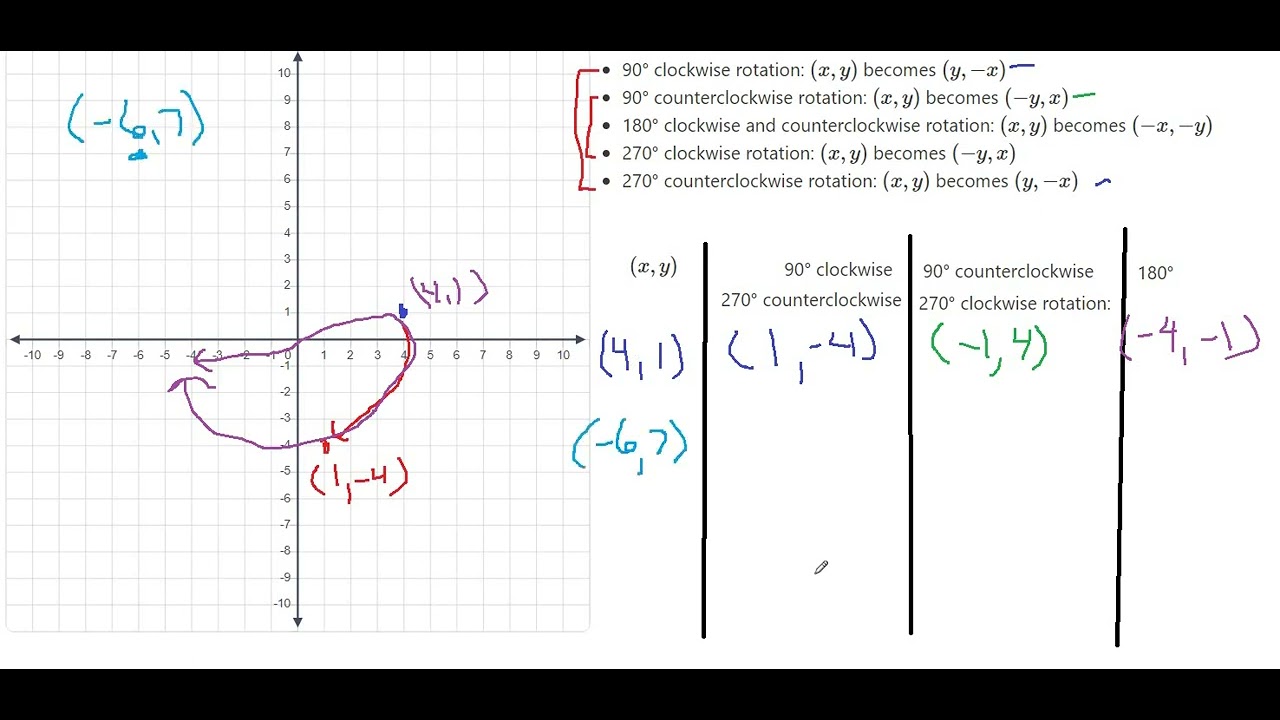 • 90° clockwise rotation: (x, y) becomes (y, −x)
• 90° counterclockwise rotation: (x, y) becomes (−y, x)
• 180° clockwise and counterclockwise rotation: (x, y) becomes (−x, −y)
• 270° clockwise rotation: (x, y) becomes (−y, x)
• 270° counterclockwise rotation: (x, y) becomes (y, −x)
(-6,7)
10
9
8
7
6
5
4
3
2
1
-10 -9 -8 -7 -6 -5 -4 -3 -2 -1 0 1 2 3 4 5 6 7 8 9 10
-1
-2
-3
-4
-5
-6
-7
-8
-9
-10
(4,1)
(1,-4)
(x, y)
90° clockwise
270° counterclockwise
90° counterclockwise
270° clockwise rotation:
180°
(4,1) (1,-4) (-1,4) (-4,-1)
(-6,7)